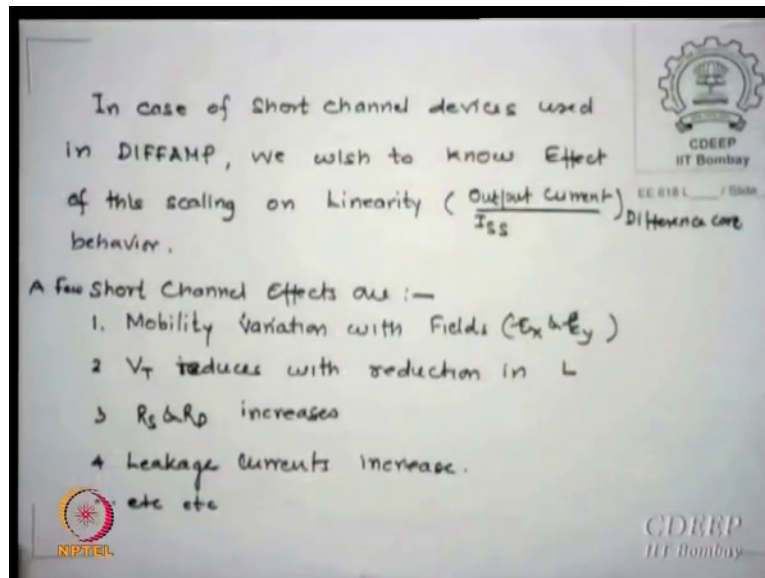 In case of short channel devices used
in DIFFAMP, we wish to know Effect
of this scaling on Linearity (Output Current / ISS) Difference
behavior.
A Few Short Channel Effects are :—
1. Mobility Variation with Fields (Ex & Ey)
2 VT reduces with reduction in L
3 RS & RD increases
4 Leakage Currents increase.
etc etc
CDEEP
IIT Bombay
EE 618 L ____ / Slide
NPTEL
CDEEP
IIT Bombay